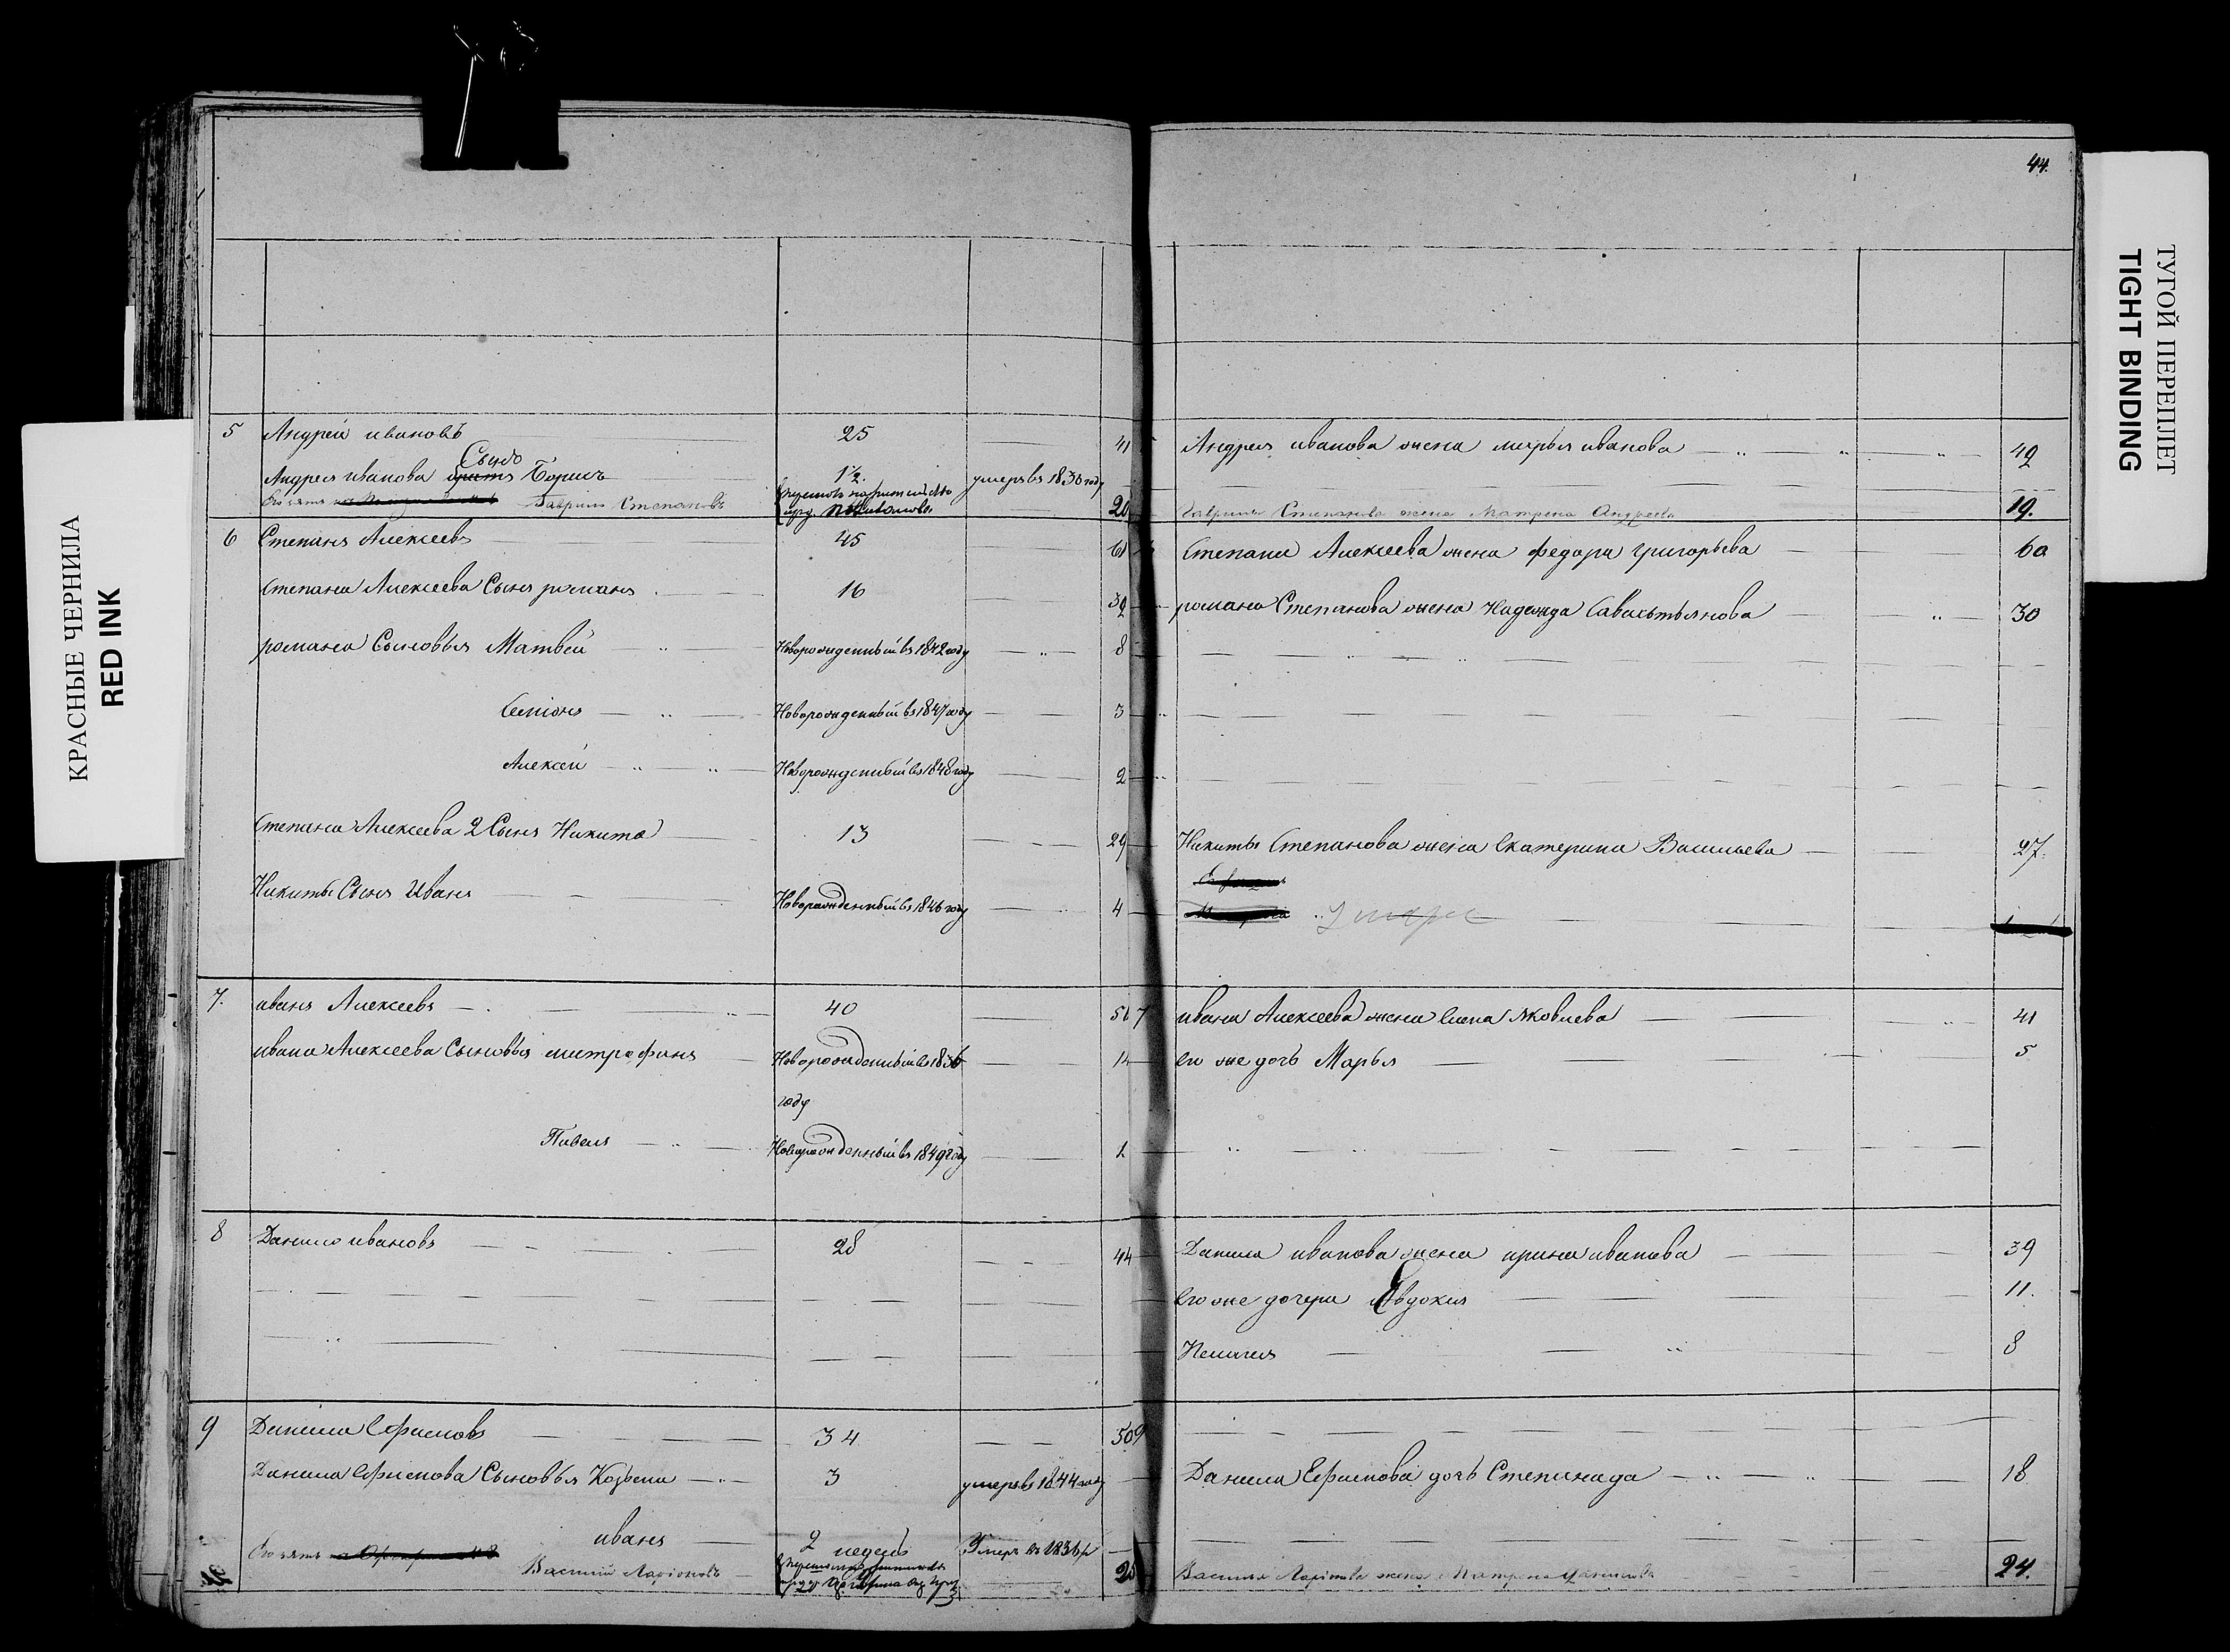 44.
КРАСНЫЕ ЧЕРНИЛА
RED INK
ТУГОЙ ПЕРЕПЛЕТ
TIGHT BINDING
5 Андрей ивановъ 25 41
Сынъ
Андрея иванова Борисъ 1½. умеръ въ 1830 году
Его зять Гаврило Степановъ 20
6 Степанъ Алексеевъ 45 61
Степана Алексеева Сынъ романъ 16 32
романа Сыновья Матвей Новорожденный въ 1842 году 8
Семіонъ Новорожденный въ 1847 году 3
Алексей Новорожденный въ 1848 году 2
Степана Алексеева 2 Сынъ Никита 13 29
Никиты Сынъ Иванъ Новорожденный въ 1846 году 4
7. иванъ Алексеевъ 40 56
ивана Алексеева Сыновья митрофанъ Новорожденный въ 1836 14
году
Павелъ Новорожденный въ 1849 году 1
8 Данило ивановъ 28 44
9 Данила Ефимовъ 34 50
Данила Ефимова Сыновья Козьма 3 умеръ въ 1844 году
иванъ 2 недели Умеръ въ 1836 г
Его зять Василий Ларіоновъ
Андрея иванова жена марья иванова 49
Гаврилы Степанова жена Матрена Андреева 19.
Степана Алексеева жена федора григорьева 60
романа Степанова жена Надежда Савастьянова 30
Никиты Степанова жена Екатерина Васильева 27.
умерла
7 ивана Алексеева жена Елена Яковлева 41
его же дочь Марья 5
Данила иванова жена ирина иванова 39
Его же дочери Евдокия 11.
Пелагея 8
9
Данила Ефимова дочь Степанида 18
Василья Ларіонова жена Матрена Данилова 24.